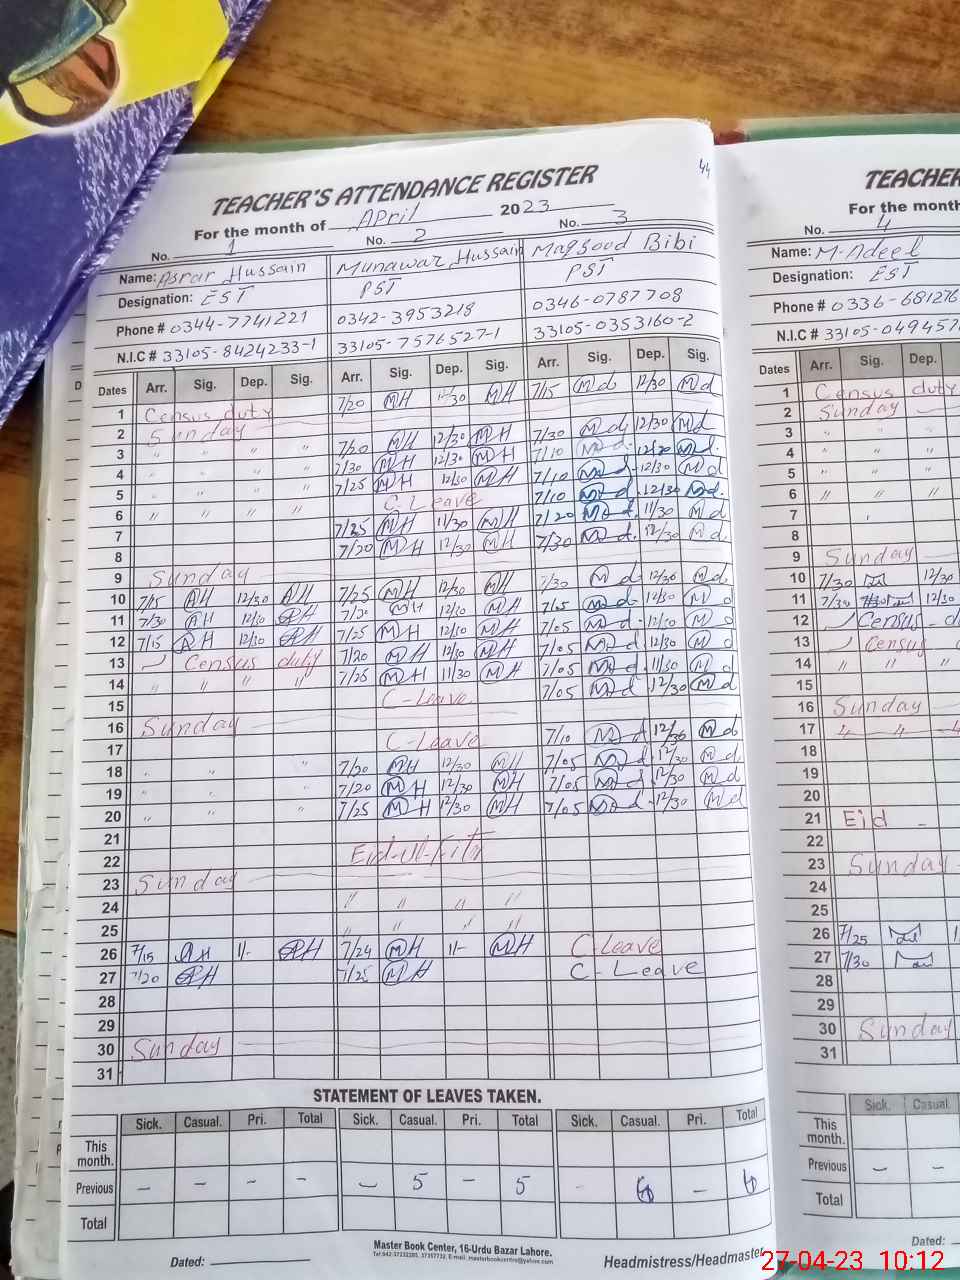 44
TEACHER'S ATTENDANCE REGISTER
For the month of April 2023
No. 1 No. 2 No. 3
Name: Asrar Hussain Munawar Hussain Maqsood Bibi
Designation: EST PST PST
Phone # 0344-7741221 0342-3953218 0346-0787708
N.I.C # 33105-8424233-1 33105-7576527-1 33105-0353160-2
Dates Arr. Sig. Dep. Sig. Arr. Sig. Dep. Sig. Arr. Sig. Dep. Sig.
1 Census duty 7/20 MH 12/30 MH 7/15 Md 12/30 Md
2 Sunday
3 " " " " 7/20 MH 12/30 MH 7/30 Md 12/30 Md
4 " " " " 7/30 MH 12/30 MH 7/10 Md 12/30 Md
5 " " " " 7/25 MH 12/30 MH 7/10 Md 12/30 Md
6 " " " " C-Leave 7/10 Md 12/30 Md
7 7/25 MH 11/30 MH 7/20 Md 11/30 Md
8 7/20 MH 12/30 MH 7/30 Md 12/30 Md
9 Sunday
10 7/15 AH 12/30 AH 7/25 MH 12/30 MH 7/30 Md 12/30 Md
11 7/30 AH 12/30 AH 7/20 MH 12/30 MH 7/05 Md 12/30 Md
12 7/15 AH 12/30 AH 7/25 MH 12/30 MH 7/05 Md 12/30 Md
13 Census duty 7/20 MH 12/30 MH 7/05 Md 12/30 Md
14 " " " " 7/25 MH 11/30 MH 7/05 Md 11/30 Md
15 C-Leave 7/05 Md 12/30 Md
16 Sunday
17 C-Leave 7/10 Md 12/30 Md
18 " " " 7/20 MH 12/30 MH 7/05 Md 12/30 Md
19 " " " 7/20 MH 12/30 MH 7/05 Md 12/30 Md
20 " " " 7/25 MH 12/30 MH 7/05 Md 12/30 Md
21
22 Eid-ul-Fitr
23 Sunday
24 " " " "
25 " " " "
26 7/15 AH 1/- AH 7/24 MH 1/- MH C-Leave
27 7/20 AH 7/25 MH C-Leave
28
29
30 Sunday
31
STATEMENT OF LEAVES TAKEN.
Sick. Casual. Pri. Total Sick. Casual. Pri. Total Sick. Casual. Pri. Total
This month.
Previous - - - - - 5 - 5 - 6 - 6
Total
Dated:
Master Book Center, 16-Urdu Bazar Lahore.
Headmistress/Headmaster
TEACHER
For the month
No. 4
Name: M-Adeel
Designation: EST
Phone # 0336-681276
N.I.C # 33105-049457
Dates Arr. Sig. Dep.
1 Census duty
2 Sunday
3 " " "
4 " " "
5 " " "
6 " " "
7
8
9 Sunday
10 7/30 12/30
11 7/30 12/30
12 Census
13 Census
14 " " "
15
16 Sunday
17
18
19
20
21 Eid -
22
23 Sunday
24
25
26 7/25
27 7/30
28
29
30 Sunday
31
Sick. Casual
This month.
Previous - -
Total
Dated:
27-04-23 10:12